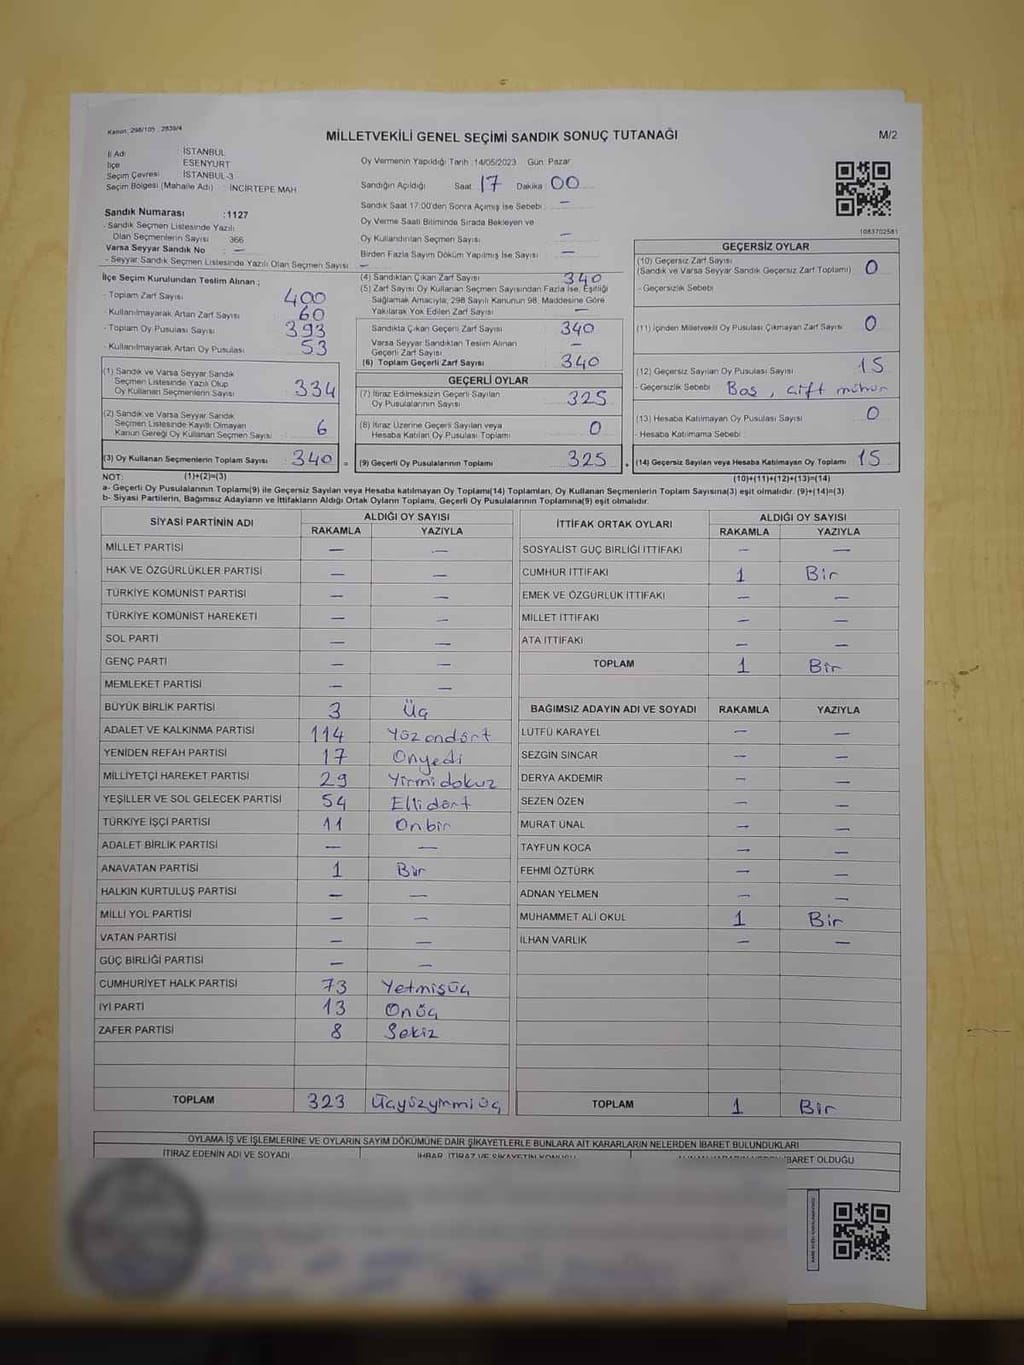 Kanun: 298/105 , 2839/4
MİLLETVEKİLİ GENEL SEÇİMİ SANDIK SONUÇ TUTANAĞI
M/2
İl Adı : İSTANBUL
İlçe ESENYURT
Seçim Çevresi İSTANBUL-3
Seçim Bölgesi (Mahalle Adı) İNCİRTEPE MAH
Sandık Numarası :1127
- Sandık Seçmen Listesinde Yazılı
Olan Seçmenlerin Sayısı 366
Varsa Seyyar Sandık No —
- Seyyar Sandık Seçmen Listesinde Yazılı Olan Seçmen Sayısı —
Oy Vermenin Yapıldığı Tarih :14/05/2023 Gün: Pazar
Sandığın Açıldığı Saat 17 Dakika : 00
Sandık Saat 17:00'den Sonra Açımış İse Sebebi : —
Oy Verme Saati Bitiminde Sırada Bekleyen ve
Oy Kullandırılan Seçmen Sayısı —
Birden Fazla Sayım Döküm Yapılmış İse Sayısı —
1083702581
İlçe Seçim Kurulundan Teslim Alınan ;
- Toplam Zarf Sayısı 400
- Kullanılmayarak Artan Zarf Sayısı 60
- Toplam Oy Pusulası Sayısı 393
- Kullanılmayarak Artan Oy Pusulası 53
(1) Sandık ve Varsa Seyyar Sandık
Seçmen Listesinde Yazılı Olup
Oy Kullanan Seçmenlerin Sayısı 334
(2) Sandık ve Varsa Seyyar Sandık
Seçmen Listesinde Kayıtlı Olmayan
Kanun Gereği Oy Kullanan Seçmen Sayısı 6
(3) Oy Kullanan Seçmenlerin Toplam Sayısı 340 =
(4) Sandıktan Çıkan Zarf Sayısı 340
(5) Zarf Sayısı Oy Kullanan Seçmen Sayısından Fazla İse, Eşitliği
Sağlamak Amacıyla, 298 Sayılı Kanunun 98. Maddesine Göre
Yakılarak Yok Edilen Zarf Sayısı —
Sandıkta Çıkan Geçerli Zarf Sayısı 340
Varsa Seyyar Sandıktan Teslim Alınan
Geçerli Zarf Sayısı —
(6) Toplam Geçerli Zarf Sayısı 340
GEÇERLİ OYLAR
(7) İtiraz Edilmeksizin Geçerli Sayılan
Oy Pusulalarının Sayısı 325
(8) İtiraz Üzerine Geçerli Sayılan veya
Hesaba Katılan Oy Pusulası Toplamı 0
(9) Geçerli Oy Pusulalarının Toplamı 325
GEÇERSİZ OYLAR
(10) Geçersiz Zarf Sayısı
(Sandık ve Varsa Seyyar Sandık Geçersiz Zarf Toplamı) 0
- Geçersizlik Sebebi
(11) İçinden Milletvekili Oy Pusulası Çıkmayan Zarf Sayısı 0
(12) Geçersiz Sayılan Oy Pusulası Sayısı 15
- Geçersizlik Sebebi Boş , çift mühür
(13) Hesaba Katılmayan Oy Pusulası Sayısı 0
- Hesaba Katılmama Sebebi
(14) Geçersiz Sayılan veya Hesaba Katılmayan Oy Toplamı 15
NOT: (1)+(2)=(3) (10)+(11)+(12)+(13)=(14)
a- Geçerli Oy Pusulalarının Toplamı(9) ile Geçersiz Sayılan veya Hesaba katılmayan Oy Toplamı(14) Toplamları, Oy Kullanan Seçmenlerin Toplam Sayısına(3) eşit olmalıdır. (9)+(14)=(3)
b- Siyasi Partilerin, Bağımsız Adayların ve İttifakların Aldığı Ortak Oyların Toplamı, Geçerli Oy Pusulalarının Toplamına(9) eşit olmalıdır.
SİYASİ PARTİNİN ADI ALDIĞI OY SAYISI
RAKAMLA YAZIYLA
MİLLET PARTİSİ — —
HAK VE ÖZGÜRLÜKLER PARTİSİ — —
TÜRKİYE KOMÜNİST PARTİSİ — —
TÜRKİYE KOMÜNİST HAREKETİ — —
SOL PARTİ — —
GENÇ PARTİ — —
MEMLEKET PARTİSİ — —
BÜYÜK BİRLİK PARTİSİ 3 Üç
ADALET VE KALKINMA PARTİSİ 114 Yüzondört
YENİDEN REFAH PARTİSİ 17 Onyedi
MİLLİYETÇİ HAREKET PARTİSİ 29 Yirmidokuz
YEŞİLLER VE SOL GELECEK PARTİSİ 54 Ellidört
TÜRKİYE İŞÇİ PARTİSİ 11 Onbir
ADALET BİRLİK PARTİSİ — —
ANAVATAN PARTİSİ 1 Bir
HALKIN KURTULUŞ PARTİSİ — —
MİLLİ YOL PARTİSİ — —
VATAN PARTİSİ — —
GÜÇ BİRLİĞİ PARTİSİ — —
CUMHURİYET HALK PARTİSİ 73 Yetmişüç
İYİ PARTİ 13 Onüç
ZAFER PARTİSİ 8 Sekiz
TOPLAM 323 Üçyüzyirmiüç
İTTİFAK ORTAK OYLARI ALDIĞI OY SAYISI
RAKAMLA YAZIYLA
SOSYALİST GÜÇ BİRLİĞİ İTTİFAKI — —
CUMHUR İTTİFAKI 1 Bir
EMEK VE ÖZGÜRLÜK İTTİFAKI — —
MİLLET İTTİFAKI — —
ATA İTTİFAKI — —
TOPLAM 1 Bir
BAĞIMSIZ ADAYIN ADI VE SOYADI RAKAMLA YAZIYLA
LÜTFÜ KARAYEL — —
SEZGİN SİNCAR — —
DERYA AKDEMİR — —
SEZEN ÖZEN — —
MURAT ÜNAL — —
TAYFUN KOCA — —
FEHMİ ÖZTÜRK — —
ADNAN YELMEN — —
MUHAMMET ALİ OKUL 1 Bir
İLHAN VARLIK — —
TOPLAM 1 Bir
OYLAMA İŞ VE İŞLEMLERİNE VE OYLARIN SAYIM DÖKÜMÜNE DAİR ŞİKAYETLERLE BUNLARA AİT KARARLARIN NELERDEN İBARET BULUNDUKLARI
İTİRAZ EDENİN ADI VE SOYADI İHBAR, İTİRAZ VE ŞİKAYETİN KONUSU İBARET OLDUĞU